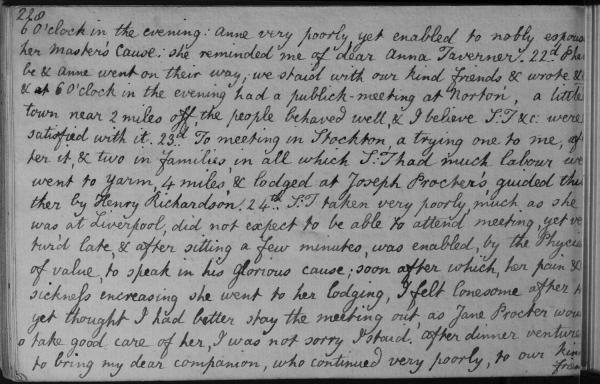 228
6 O'clock in the evening: Anne very poorly yet enabled to nobly espouse
her Master's Cause: she reminded me of dear Anna Taverner. 22.d Phe
be & Anne went on their way; we staid with our kind friends & wrote &
& at 6 O'clock in the evening had a publick-meeting at Norton, a little
town near 2 miles off the people behaved well, & I believe S:T &c: were
satisfied with it. 23.d To meeting in Stockton, a trying one to me, af
ter it, & two in families, in all which S:T had much labour we
went to Yarm, 4 miles, & lodged at Joseph Procter's, guided thi
ther by Henry Richardson. 24.th S:T taken very poorly, much as she
was at Liverpool, did not expect to be able to attend meeting, yet ve
tur'd late, & after sitting a few minutes, was enabled, by the Physician
of value, to speak in his glorious cause; soon after which, her pain &
sickness encreasing she went to her lodging, I felt lonesome after
yet thought I had better stay the meeting out, as Jane Procter wou
take good care of her, I was not sorry I staid. after dinner venture
to bring my dear companion, who continued very poorly, to our kind
frien